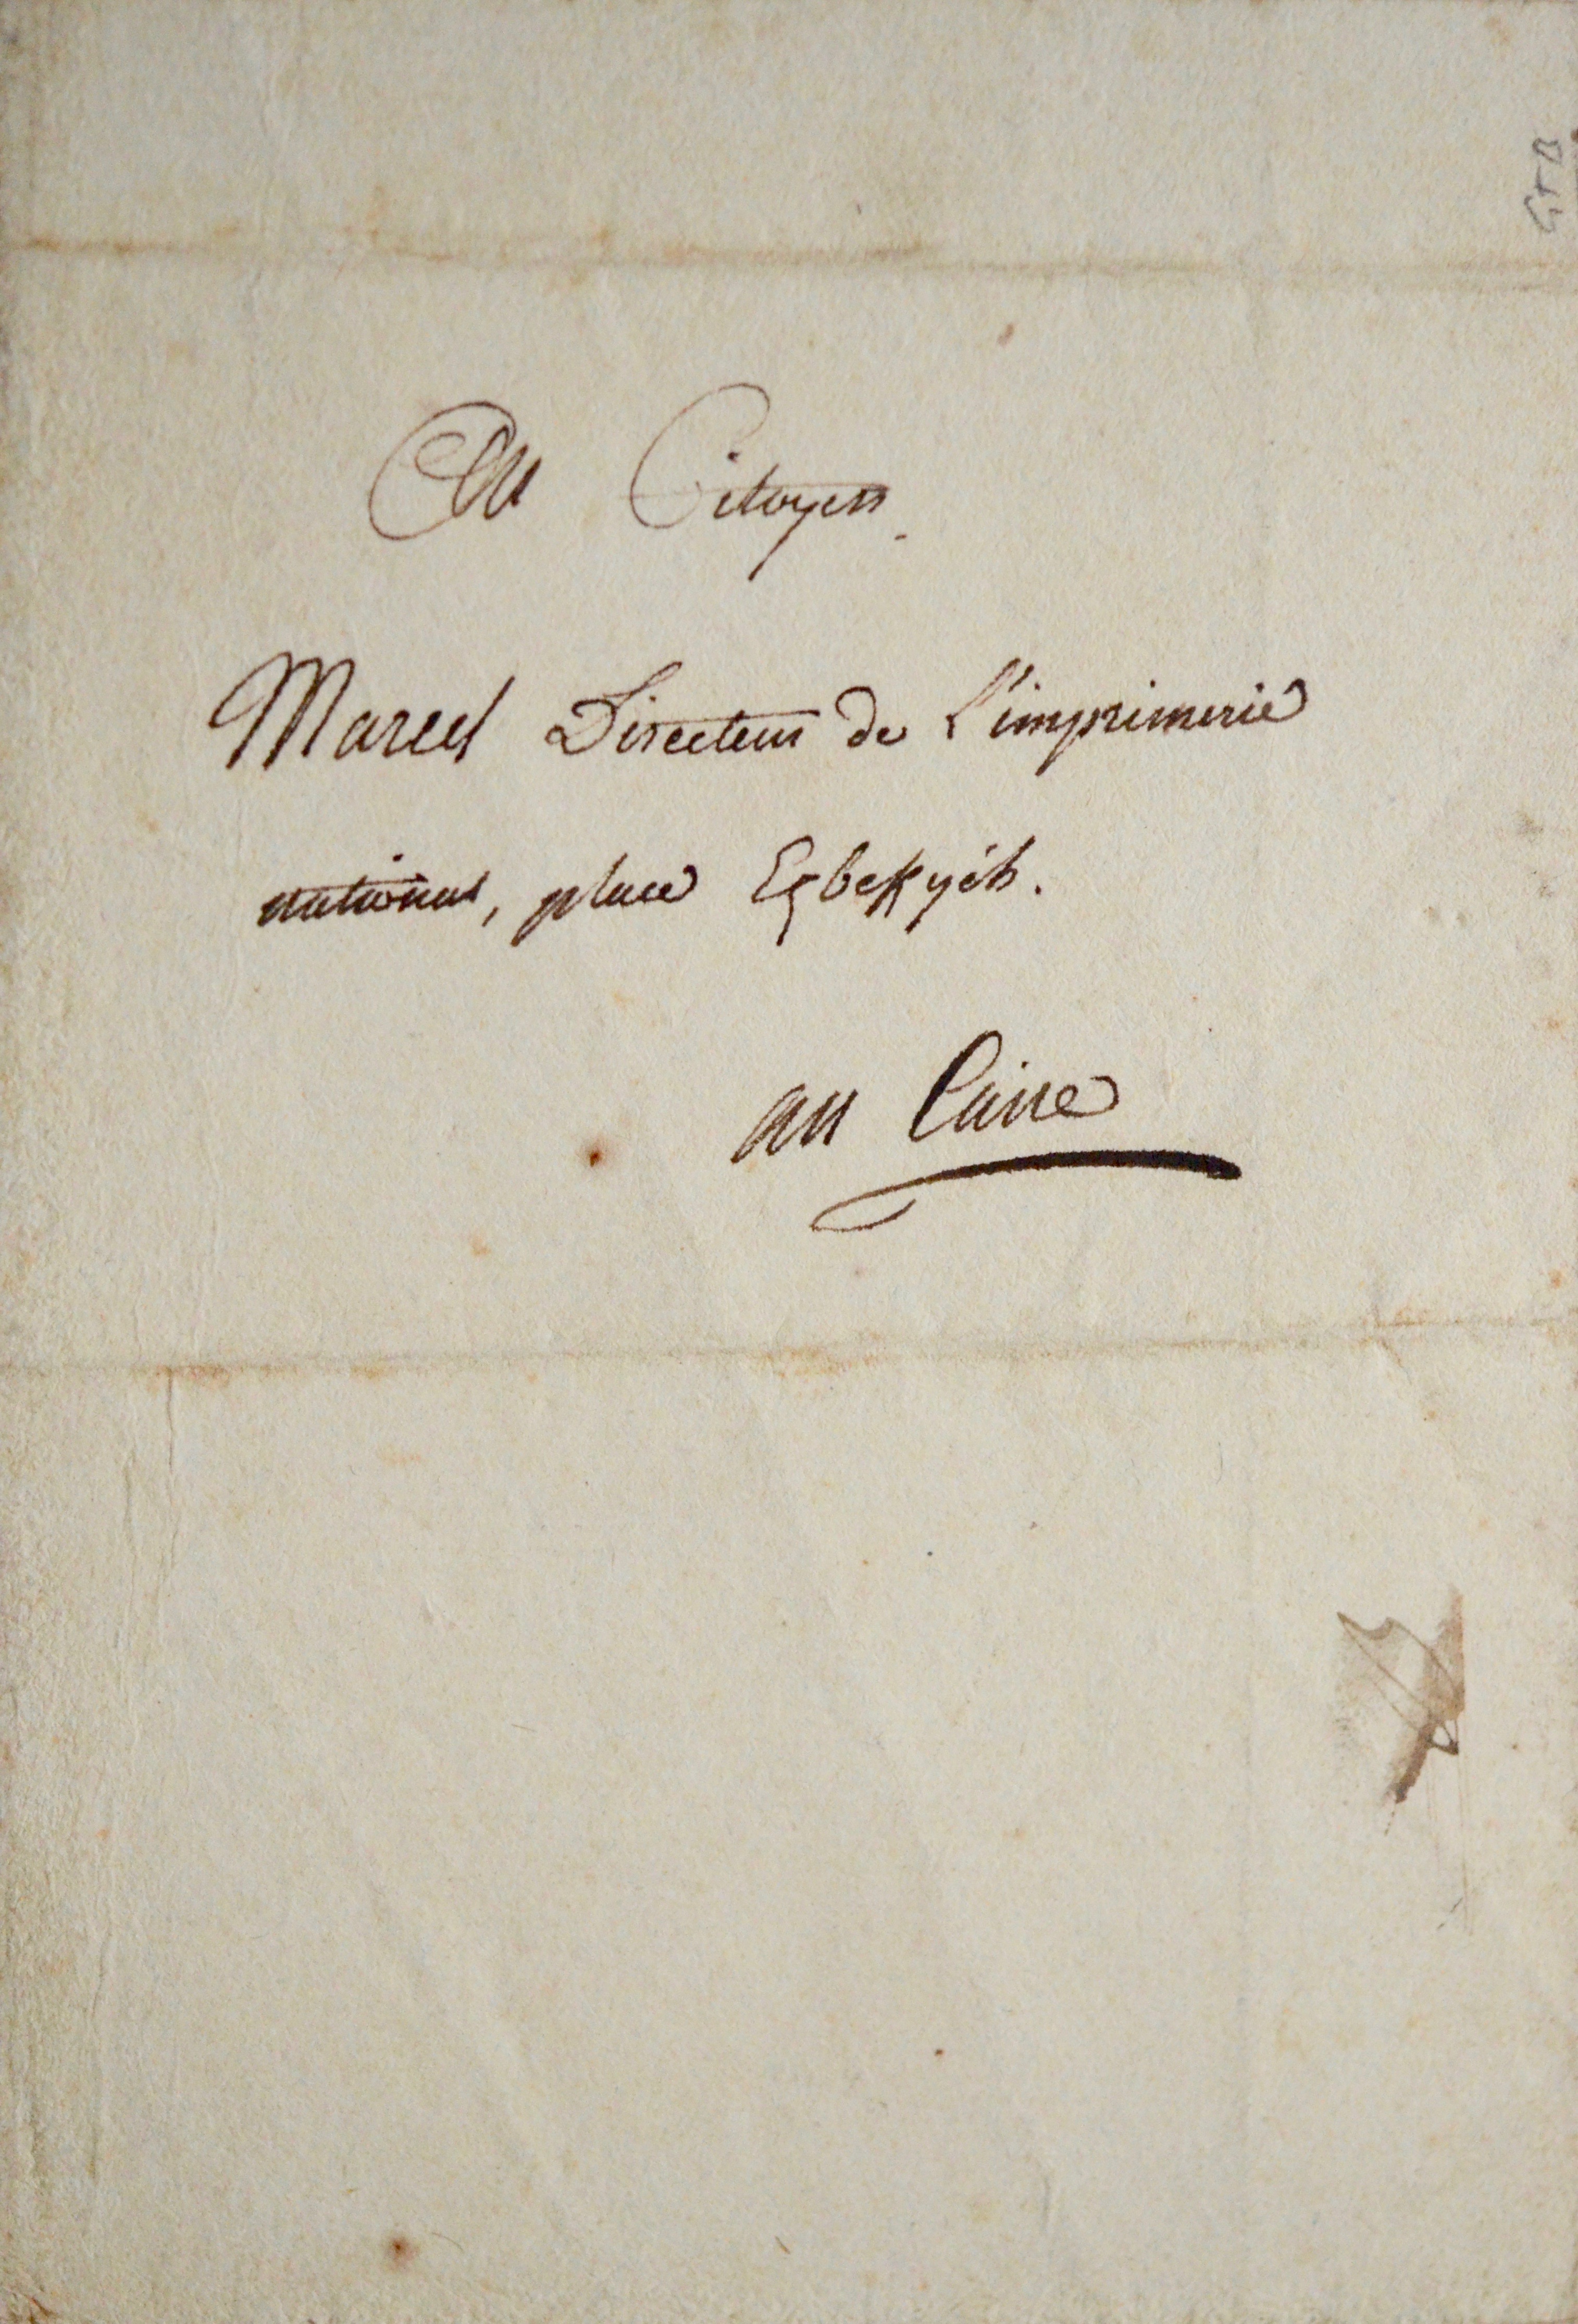 Au Citoyen
Marcel Directeur de L'imprimerie
national, place Ezbekyéh.
au Caire